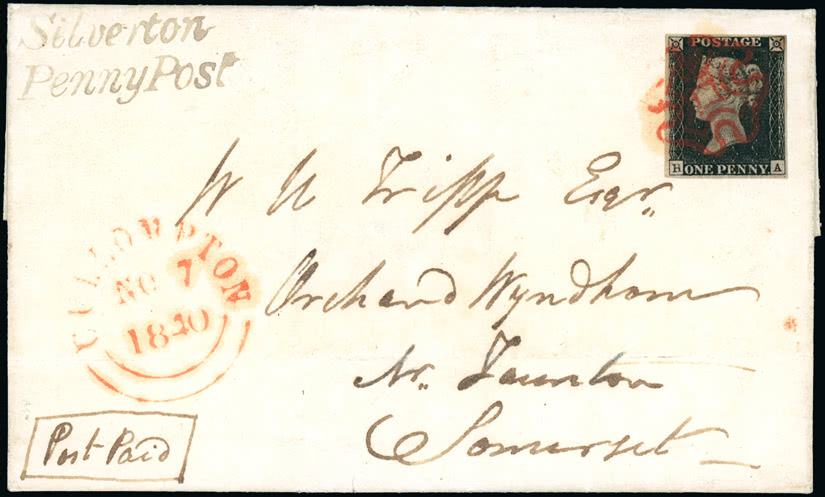 Silverton
Penny Post
POSTAGE
H A
ONE PENNY
W H Tripp Esqr.
Orchard Wyndham
Nr. Taunton
Somerset
CULLOMPTON
NO 7
1840
Post Paid